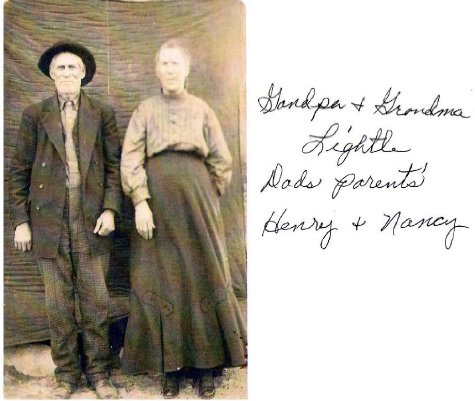 Grandpa & Grandma
Lightle
Dads parents'
Henry & Nancy